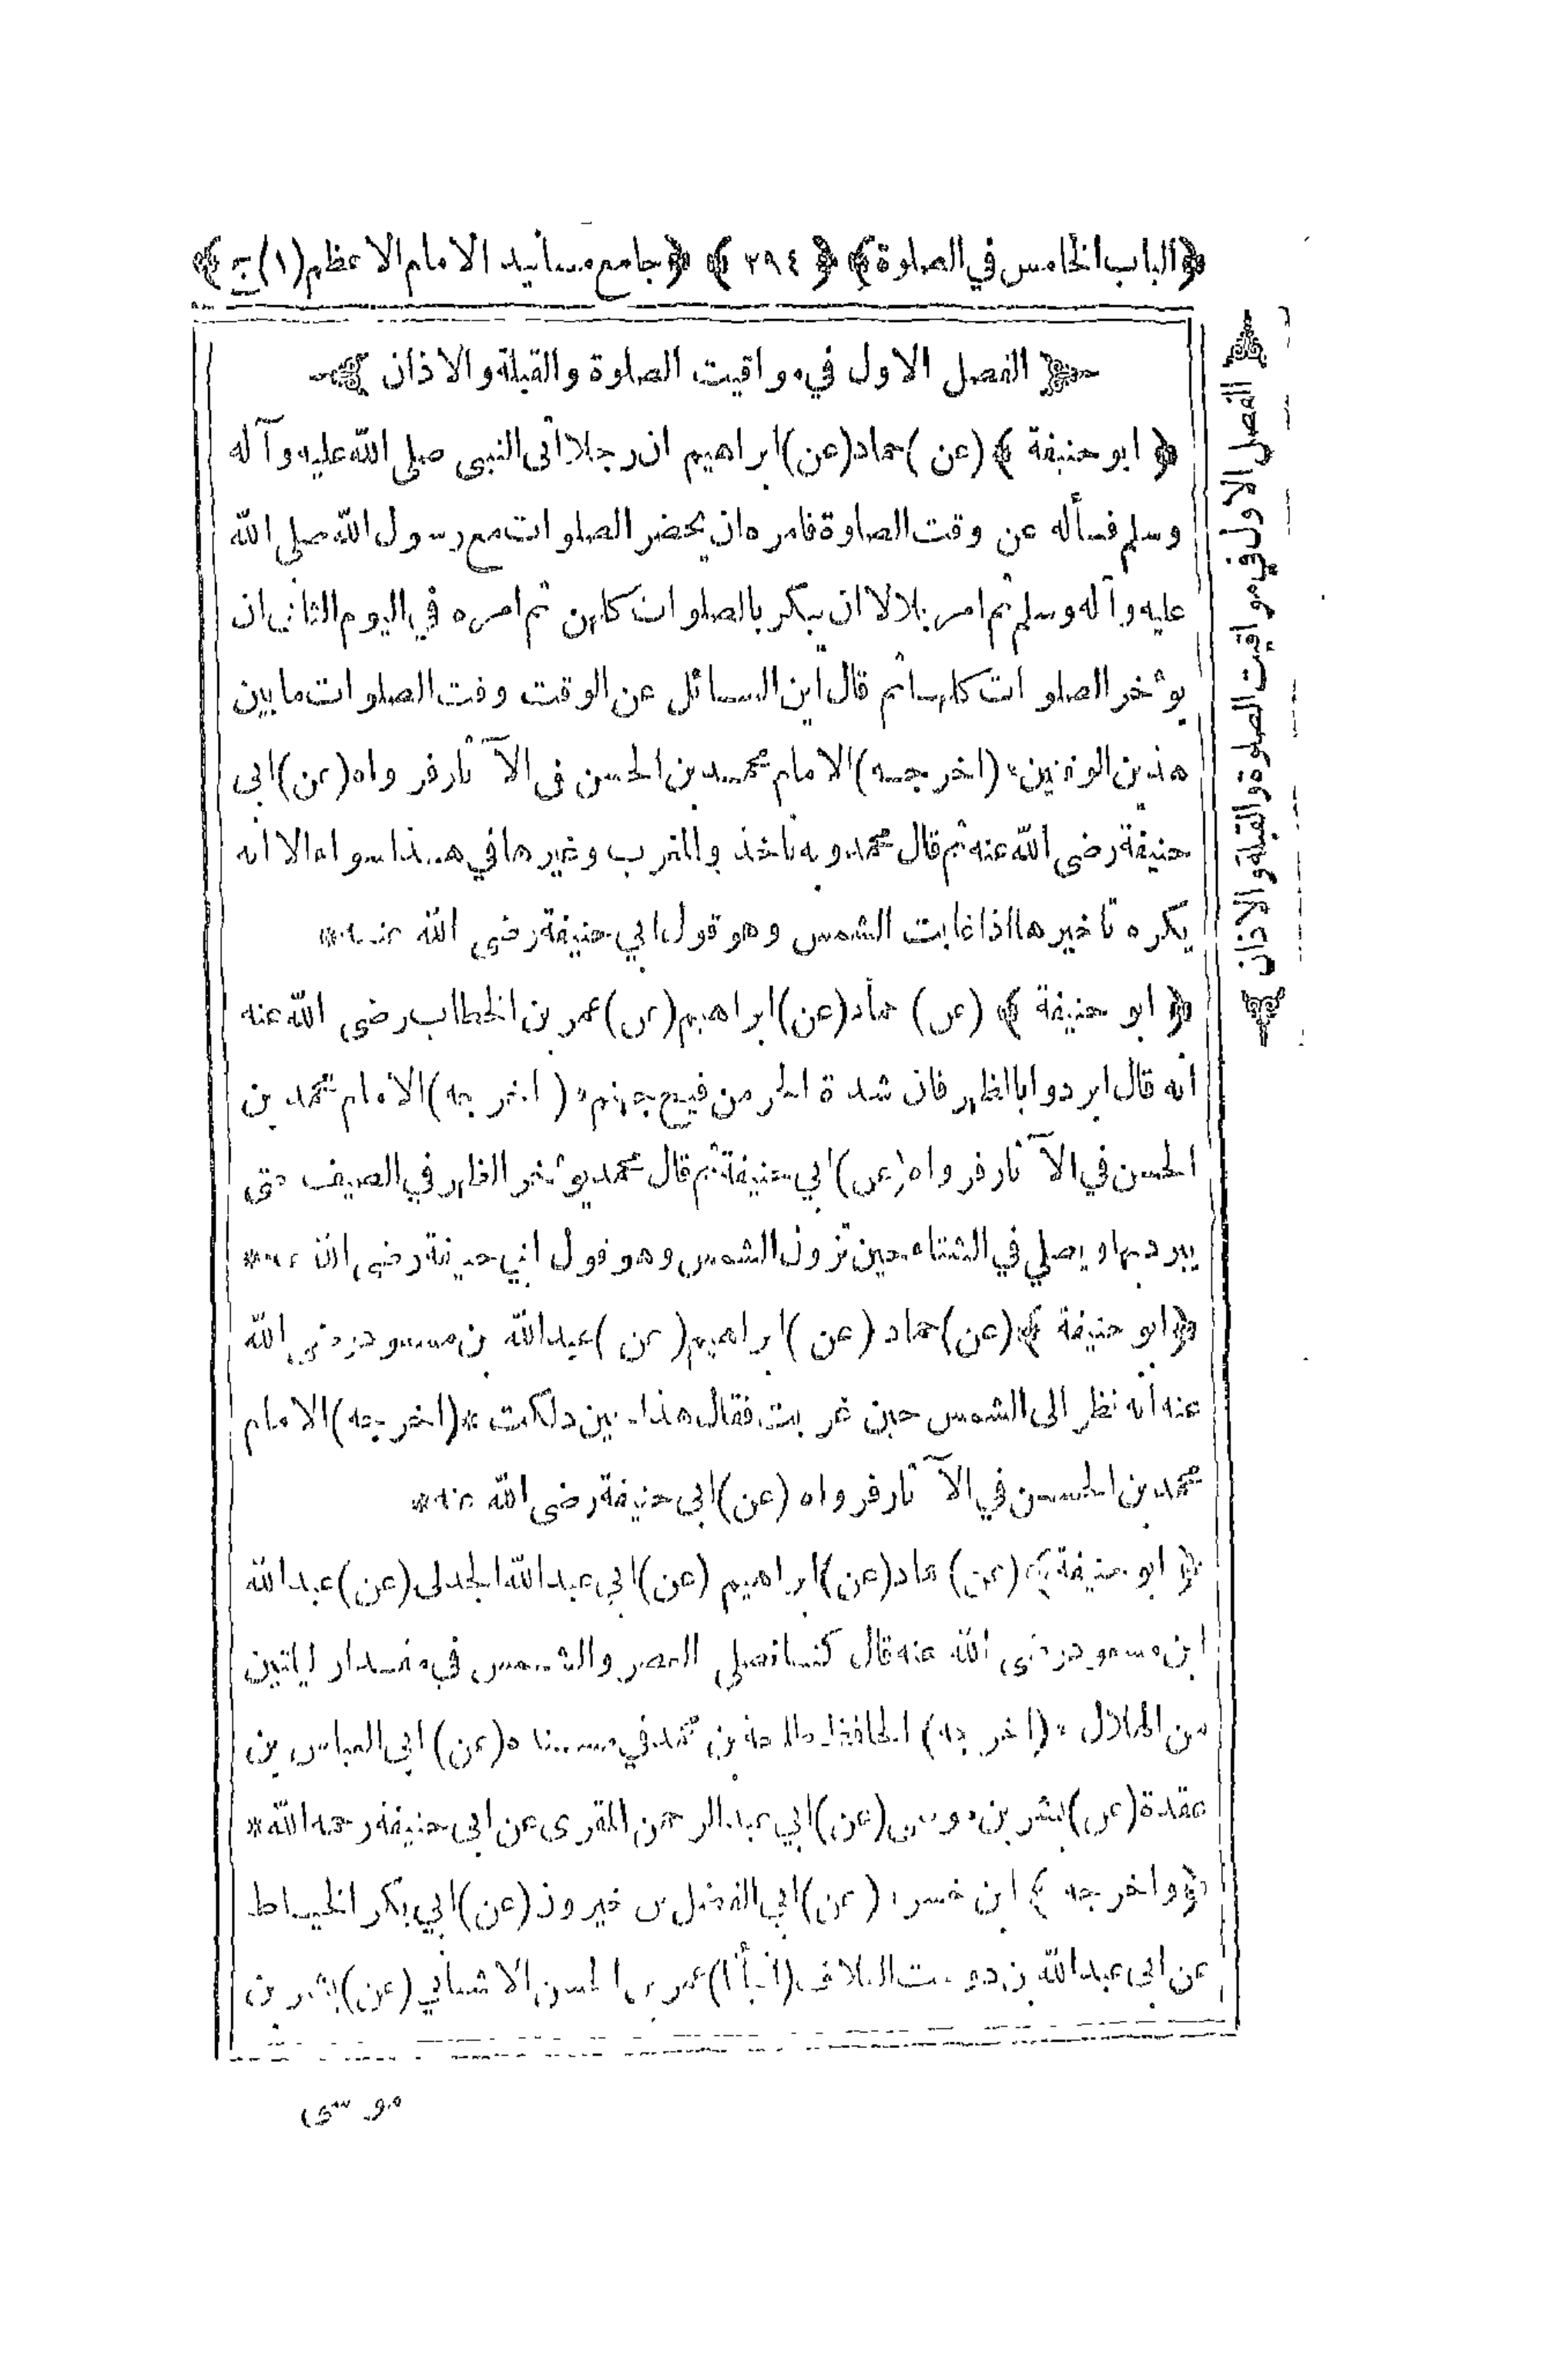 ﴿الباب الخامس في الصلوة﴾ ﴿ ٢٩٤ ﴾ ﴿جامع مسانيد الامام الاعظم (١) ج﴾
﴿ الفصل الاول في مواقيت الصلوة والقبلة والاذان ﴾
﴿ ابو حنيفة ﴾ (عن) حماد (عن) ابراهيم ان رجلا اتى النبي صلى الله عليه وآله
وسلم فسأله عن وقت الصلوة فامره ان يحضر الصلوات مع رسول الله صلى الله
عليه وآله وسلم ثم امر بلالا ان يبكر بالصلوات كلهن ثم امره في اليوم الثاني ان
يؤخر الصلوات كلها ثم قال اين السائل عن الوقت وقت الصلوات ما بين
هذين الوقتين * (اخرجه) الامام محمد بن الحسن في الآثار فرواه (عن) ابي
حنيفة رضى الله عنه ثم قال محمد وبه نأخذ والمغرب وغيرها في هذا سواء الا انه
يكره تأخيرها اذا غابت الشمس وهو قول ابي حنيفة رضى الله عنه *
﴿ ابو حنيفة ﴾ (عن) حماد (عن) ابراهيم (عن) عمر بن الخطاب رضى الله عنه
انه قال ابردوا بالظهر فان شدة الحر من فيح جهنم * (اخرجه) الامام محمد بن
الحسن في الآثار فرواه (عن) ابي حنيفة ثم قال محمد يؤخر الظهر في الصيف حتى
يبرد بها ويصلي في الشتاء حين تزول الشمس وهو قول ابي حنيفة رضى الله عنه *
﴿ابو حنيفة ﴾ (عن) حماد (عن) ابراهيم (عن) عبدالله بن مسعود رضى الله
عنه انه نظر الى الشمس حين غربت فقال هذا حين دلكت * (اخرجه) الامام
محمد بن الحسن في الآثار فرواه (عن) ابي حنيفة رضى الله عنه *
﴿ ابو حنيفة ﴾ (عن) حماد (عن) ابراهيم (عن) ابي عبدالله الجدلى (عن) عبدالله
ابن مسعود رضى الله عنه قال كنا نصلي العصر والشمس في مقدار ليلتين
من الهلال * (اخرجه) الحافظ طلحة بن محمد في مسنده (عن) ابي العباس بن
عقدة (عن) بشر بن موسى (عن) ابي عبدالرحمن المقرى عن ابي حنيفة رحمه الله *
﴿واخرجه ﴾ ابن خسرو (عن) ابي الفضل بن خيرون (عن) ابي بكر الخياط
عن ابي عبدالله بن دوست العلاف (انبأنا) عمر بن الحسن الاشناني (عن) بشر بن
موسى
﴿ الفصل الاول في مواقيت الصلوة والقبلة والاذان ﴾